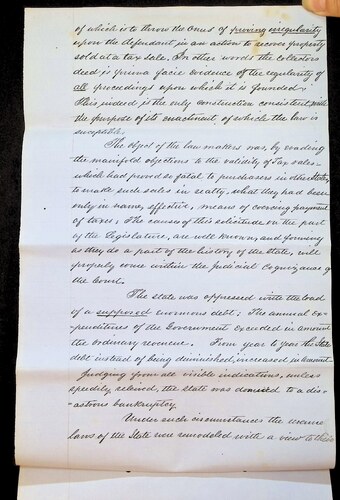 of which is to throw the onus of proving irregularity
upon the defendant in an action to recover property
sold at a tax sale. In other words the collectors
deed is prima facie evidence of the regularity of
all proceedings upon which it is founded.
This indeed is the only construction consistent with
the purpose of its enactment, of which the law is
susceptible.
The object of the law makers was, by evading
the manifold objections to the validity of Tax sales
which had proved so fatal to purchasers in other States,
to make such sales in realty, what they had been
only in name, effective, means of coercing payment
of taxes; The causes of this solicitude on the part
of the Legislature, are well known, and forming
as they do a part of the history of the State, will
properly come within the Judicial Cognizance of
the Court.
The State was oppressed with the load
of a supposed enormous debt; The annual Ex-
penditures of the Government exceeded in amount
the ordinary revenue. From year to year the State
debt instead of being diminished, increased in amount
Judging from all visible indications, unless
speedily relieved, the State was doomed to a dis-
=astrous bankruptcy.
Under such circumstances the revenue
Laws of the State were remodeled with a view to